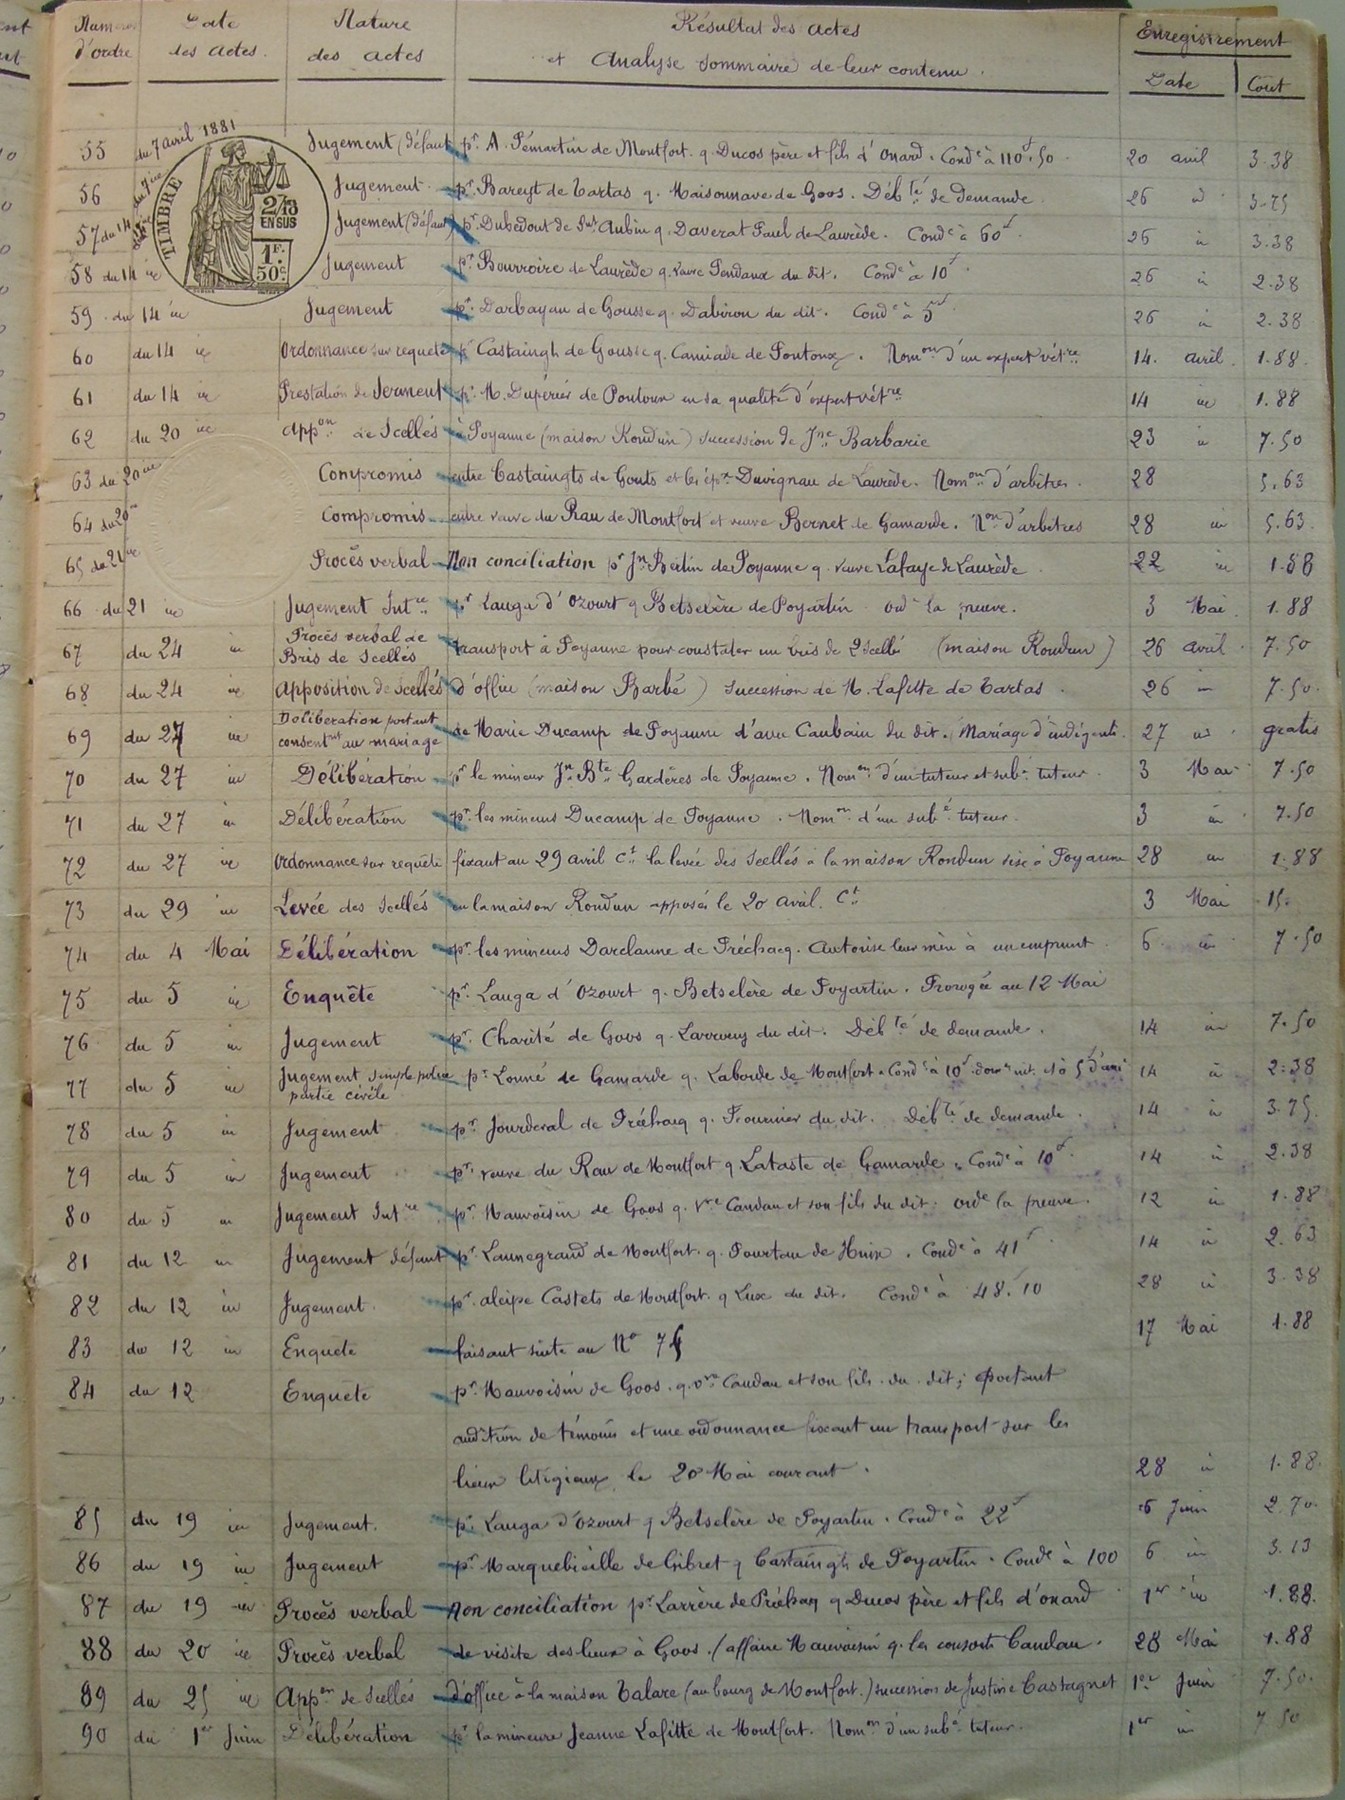 Numéro d'ordre | Date des actes. | Nature des actes | Résultat des actes et Analyse sommaire de leur contenu. | Enregistrement Date | Coût
TIMBRE 2/10 EN SUS 1F. 50c.
55 du 7 avril 1881 Jugement (défaut pr. A. Pémartin de Montfort. q. Ducos père et fils d'Onard. Conde à 110f.50 20 avril 3.38
56 du 7 in Jugement pr. Bareyt de Tartas q. Maisonnave de Goos. Débté de demande 26 in 3.75
57 du 14 in Jugement (défaut) pr. Dubedout de St Aubin q. Daverat Paul de Laurède. Conde à 60f. 26 in 3.38
58 du 14 in Jugement pr. Bourroire de Laurède q. veuve Pendanx du dit. Conde à 10f. 26 in 2.38
59 du 14 in Jugement pr. Darbayan de Gousse q. Dabiron du dit. Conde à 5f 26 in 2.38
60 du 14 in Ordonnance sur requête pr Castaingh de Gousse q. Camiade de Pontonx. Nomon d'un expert vétre 14. avril 1.88.
61 du 14 in Prestation de Serment pr. M. Dupérier de Pontonx en sa qualité d'expert vétre 14 in 1.88
62 du 20 in Appon de Scellés à Poyanne (maison Rondun) succession de Jne Barbarie 23 in 7.50
63 du 20 in Compromis entre Castaingts de Gouts et les épx Duvignau de Laurède. Nomon d'arbitres. 28 5.63
64 du 20 in Compromis entre veuve du Rau de Montfort et veuve Bernet de Gamarde. Non d'arbitres 28 in 5.63.
65 du 21 in Procès verbal Non conciliation pr Jn Bertin de Poyanne q. veuve Lafaye de Laurède 22 in 1.88
66 du 21 in Jugement Intre pr Lauga d'Ozourt q Betselère de Poyartin ode la preuve. 3 Mai 1.88
67 du 24 in Procès verbal de Bris de Scellés transport à Poyanne pour constater un bris de 2 scellés (maison Rondun) 26 avril 7.50
68 du 24 in Apposition de Scellés d'office (maison Barbé) succession de M. Lafitte de Tartas. 26 in 7.50.
69 du 27 in Délibération portant consentnt au mariage de Marie Ducamp de Poyanne d'avec Caubain du dit. Mariage d'indigents. 27 in gratis
70 du 27 in Délibération pr le mineur Jn Bte Gardères de Poyanne. Nomon d'un tuteur et subé tuteur. 3 Mai 7.50
71 du 27 in Délibération pr. les mineurs Ducamp de Poyanne. Nomon d'un subé tuteur. 3 in 7.50
72 du 27 in Ordonnance sur requête fixant au 29 avril Ct la levée des scellés à la maison Rondun sise à Poyanne 28 in 1.88
73 du 29 in Levée des scellés en la maison Rondun apposés le 20 avril. Ct 3 Mai 15.
74 du 4 Mai Délibération pr. les mineurs Darclanne de Préchacq. Autorise leur mère à un emprunt. 6 in 7.50
75 du 5 in Enquête pr. Lauga d'Ozourt q. Betselère de Poyartin. Prorogée au 12 Mai
76 du 5 in Jugement pr. Charité de Goos q. du dit. Débté de demande. 14 in 7.50
77 du 5 in Jugement simple police partie civile pr Lonné de Gamarde q. Laborde de Montfort. Conde à 10f dom et int. et à 5f d'ame 14 in 2.38
78 du 5 in Jugement pr. Jourderal de Préchacq q. Fournier du dit. Débté de demande. 14 in 3.75
79 du 5 in Jugement pr. veuve du Rau de Montfort q Lataste de Gamarde. Conde à 10f. 14 in 2.38
80 du 5 in Jugement Intre pr. Mauvoisin de Goos q. Vve Candau et son fils du dit. ode la preuve. 12 in 1.88
81 du 12 in Jugement défaut pr. Launegrand de Montfort. q. Pourtau de Hinx. Conde à 41f 14 in 2.63
82 du 12 in Jugement. pr. alcipe Castets de Montfort. q Lux du dit. Conde à 48f.10 28 in 3.38
83 du 12 in Enquête faisant suite au No 75 17 Mai 1.88
84 du 12 Enquête pr. Mauvoisin de Goos. q. vve Candau et son fils du dit; portant
audition de témoins et une ordonnance fixant un transport sur les
lieux litigieux le 20 Mai courant. 28 in 1.88.
85 du 19 in Jugement. pr. Lauga d'Ozourt q Betselère de Poyartin. Conde à 22f 6 Juin 2.70
86 du 19 in Jugement pr. Marquebieille de Gibret q Castaingh de Poyartin. Conde à 100 6 in 3.13
87 du 19 in Procès verbal Non conciliation pr Larrère de Préchacq q Ducos père et fils d'onard 1er in 1.88.
88 du 20 in Procès verbal de visite des lieux à Goos. (affaire Mauvoisin q. les consorts Candau. 28 Mai 1.88
89 du 25 in Appon de Scellés d'office à la maison Talare (au bourg de Montfort.) succession de Justine Castagnet 1er Juin 7.50.
90 du 1er Juin Délibération pr la mineure Jeanne Lafitte de Montfort. Nomon d'un subé tuteur. 1er in 7.50